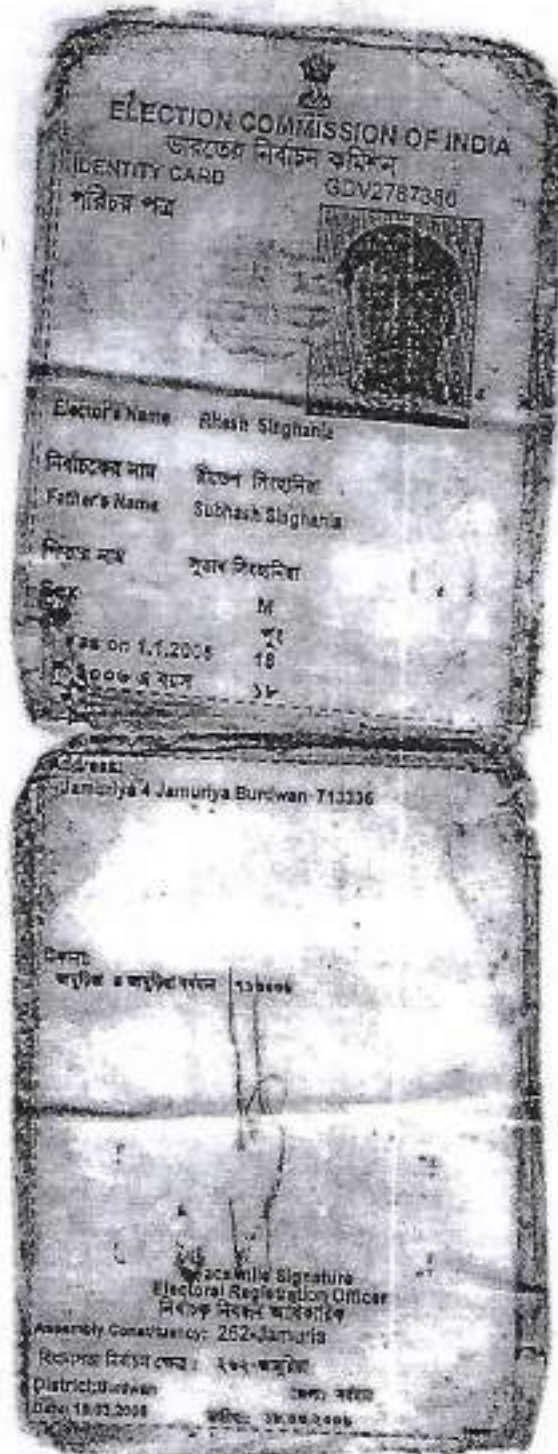 ELECTION COMMISSION OF INDIA
ভারতের নির্বাচন কমিশন
IDENTITY CARD GDV2787380
পরিচয় পত্র
Elector's Name Ritesh Singhania
নির্বাচকের নাম রীতেশ সিংহানিয়া
Father's Name Subhash Singhania
পিতার নাম সুভাষ সিংহানিয়া
Sex M
পুং
as on 1.1.2006 18
২০০৬ এ বয়স ১৮
Address:
Jamuriya 4 Jamuriya Burdwan 713336
ঠিকানা:
জামুরিয়া ৪ জামুরিয়া বর্ধমান ৭১৩৩৩৬
Facsimile Signature
Electoral Registration Officer
নির্বাচক নিবন্ধন আধিকারিক
Assembly Constituency: 262-Jamuria
বিধানসভা নির্বাচন ক্ষেত্র: ২৬২-জামুরিয়া
District: Burdwan জেলা: বর্ধমান
Date: 18.03.2006 তারিখ: ১৮.০৩.২০০৬